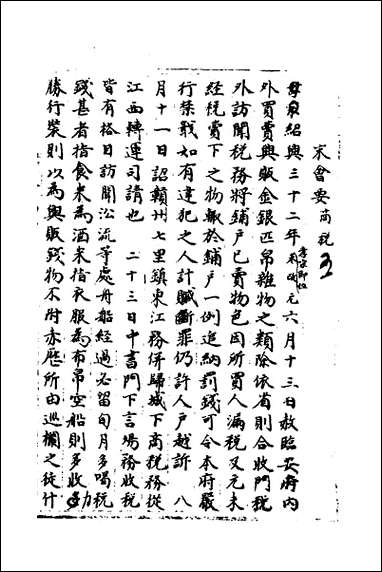 宋會要 商稅
紹興三十二年孝宗即位未改元六月十三日赦臨安府內
外買賣興販金銀匹帛雜物之類除依省則合收門稅
外訪聞稅務將鋪戶已賣物色因所買人漏稅又元未
經稅賣下之物輒於鋪戶一例追納罰錢可令本府嚴
行禁戢如有違犯之人計贓斷罪仍許人戶越訴 八
月十一日詔贛州七里鎮東江務併歸城下商稅務從
江西轉運司請也 二十三日中書門下言場務收稅
皆有格日訪聞沿流等處舟船經過必留旬月多喝稅
錢甚者指食米為酒米指衣服為布帛空船則多收力
勝行裝則以為興販錢物不附赤曆所由巡欄之徒什